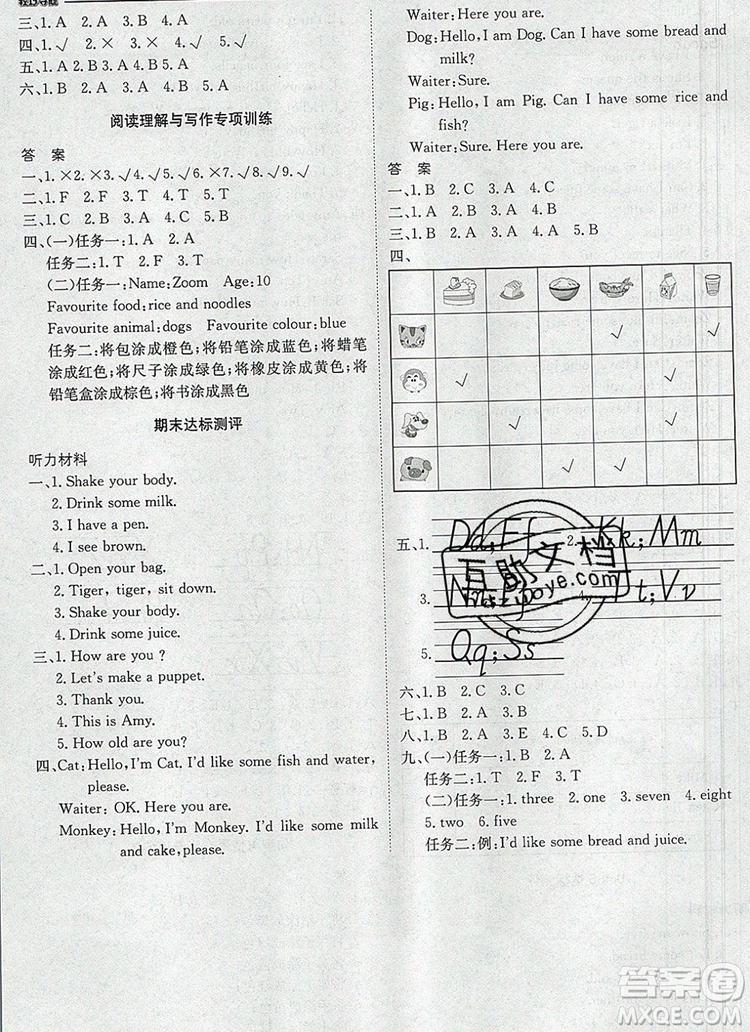 三、1. A　2. A　3. A　4. A
四、1. √　2. ×　3. ×　4. √
五、1. A　2. B　3. A　4. B　5. A
六、1. B　2. A　3. B　4. B　5. A
阅读理解与写作专项训练
答　案
一、1. ×2. ×3. √4. √5. √6. ×7. √8. √9. √
二、1. F　2. F　3. T　4. T
三、1. C　2. B　3. A　4. B　5. A
四、(一)任务一:1. A　2. A
任务二:1. T　2. F　3. T
(二)任务一:Name:Zoom　Age:10
Favourite food:rice and noodles
Favourite animal:dogs　Favourite colour:blue
任务二:将包涂成橙色;将铅笔涂成蓝色;将蜡笔
涂成红色;将尺子涂成绿色;将橡皮涂成黄色;将
铅笔盒涂成棕色;将书涂成黑色
期末达标测评
听力材料
一、1. Shake your body.
2. Drink some milk.
3. I have a pen.
4. I see brown.
二、1. Open your bag.
2. Tiger, tiger, sit down.
3. Shake your body.
4. Drink some juice.
三、1. How are you ?
2. Let's make a puppet.
3. Thank you.
4. This is Amy.
5. How old are you?
四、Cat:Hello,I'm Cat. I'd like some fish and water,
please.
Waiter: OK. Here you are.
Monkey: Hello, I'm Monkey. I'd like some milk
and cake,please.
Waiter: Here you are.
Dog:Hello, I am Dog. Can I have some bread and
milk?
Waiter:Sure.
Pig: Hello, I am Pig. Can I have some rice and
fish?
Waiter:Sure. Here you are.
答　案
一、1. B　2. C　3. A　4. C
二、1. A　2. A　3. A　4. B
三、1. B　2. C　3. A　4. A　5. B
四、
√ √
√ √
√ √
√ √
五、1. Dd;Ff 2. Kk;Mm
3. 4. t;Vv
5. Qq;Ss
互助文档
六、1. B　2. C　3. C
七、1. B　2. A　3. B
八、1. B　2. A　3. E　4. C　5. D
九、(一)任务一:1. B　2. A
任务二:1. T　2. F　3. T
(二)任务一:1. three　2. one　3. seven　4. eight
5. two　6. five
任务二:例:I'd like some bread and juice.
答案圈
MXQE.COM